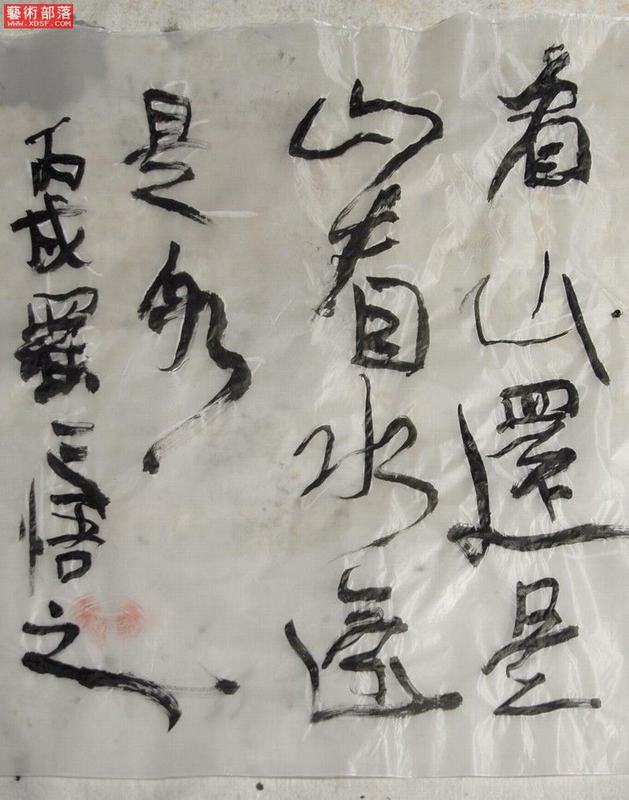 藝術部落
WWW.XDSF.COM
看山還是
山看水還
是水
丙戌羅三悟之